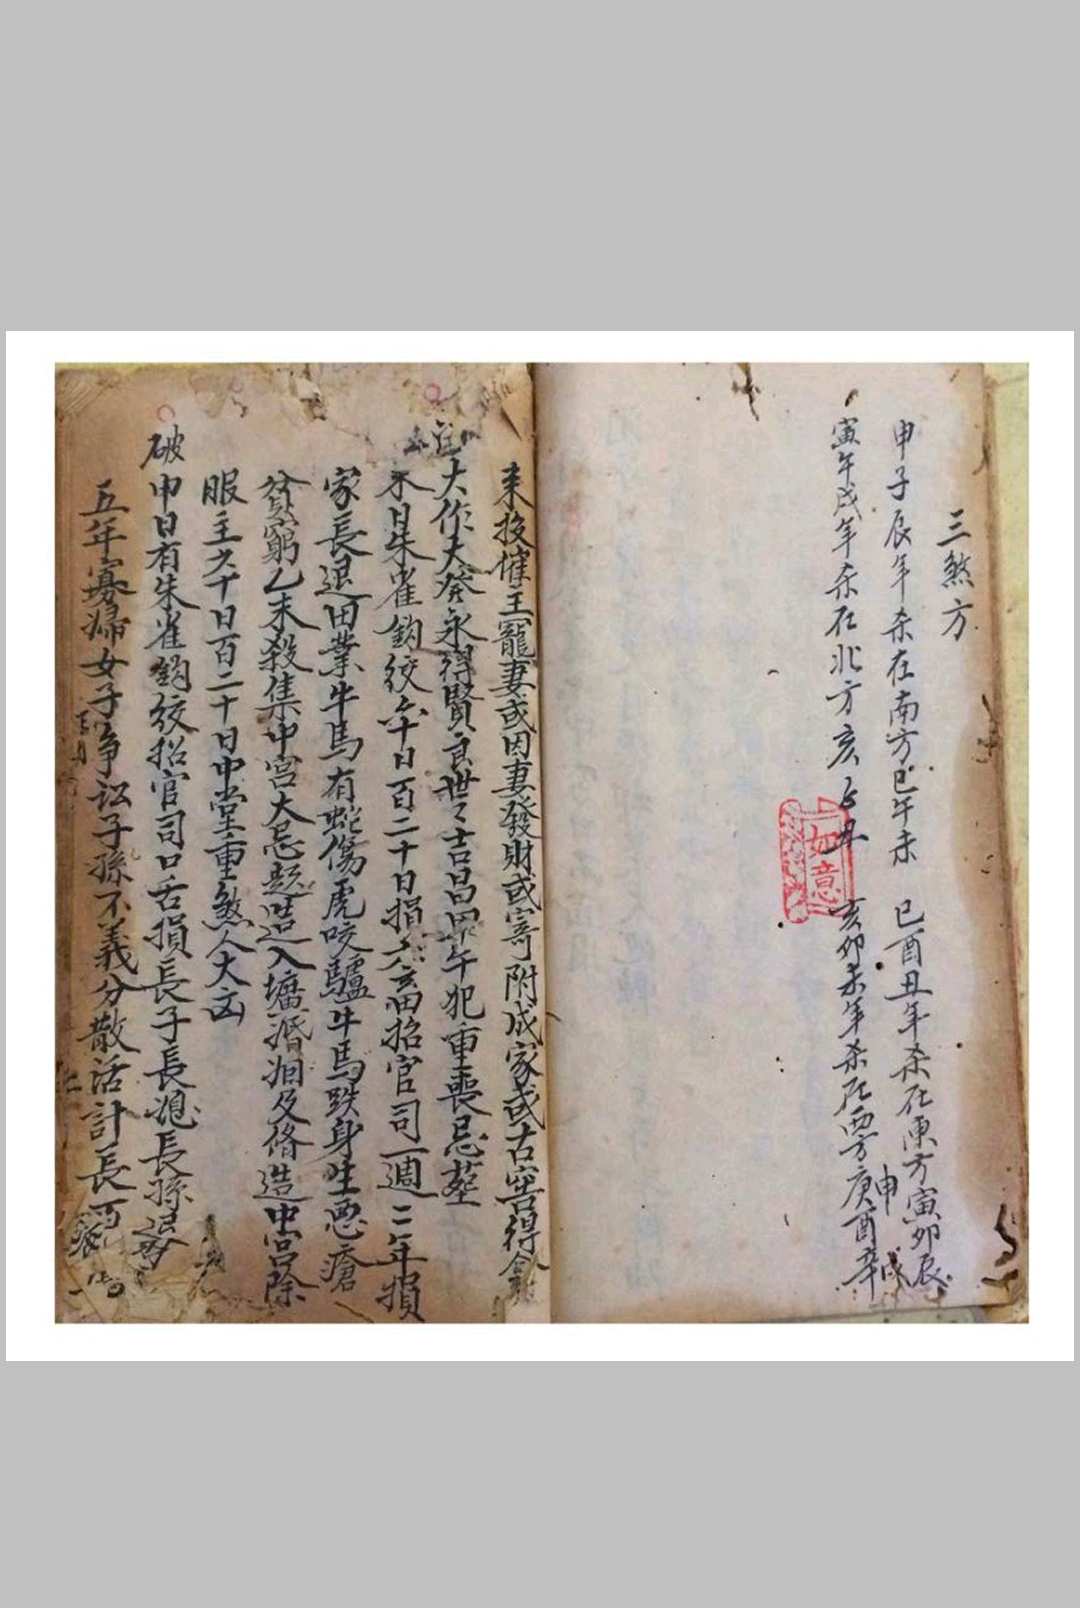 三煞方
申子辰年杀在南方巳午未 巳酉丑年杀在東方寅卯辰
寅午戌年杀在北方亥子丑 亥卯未年杀在西方庚酉辛
申 戌
如意
来投催王寵妻或因妻發財或寄附成家或古窖得金
大作大發永得賢良世々吉昌甲午犯重喪忌葬
未日朱雀鈎绞六十日百二十日損六畜招官司一週二年損
家長退田業牛馬有蛇傷虎咬驢牛馬跌身生悪瘡
貧窮乙未殺集中宮大忌起造入壙婚姻及脩造中宮除
服主六十日百二十日中堂重煞人大凶
破申日有朱雀鈎绞招官司口舌損長子長媳長孫退
五年寡婦女子争訟子孫不義分散活計長百